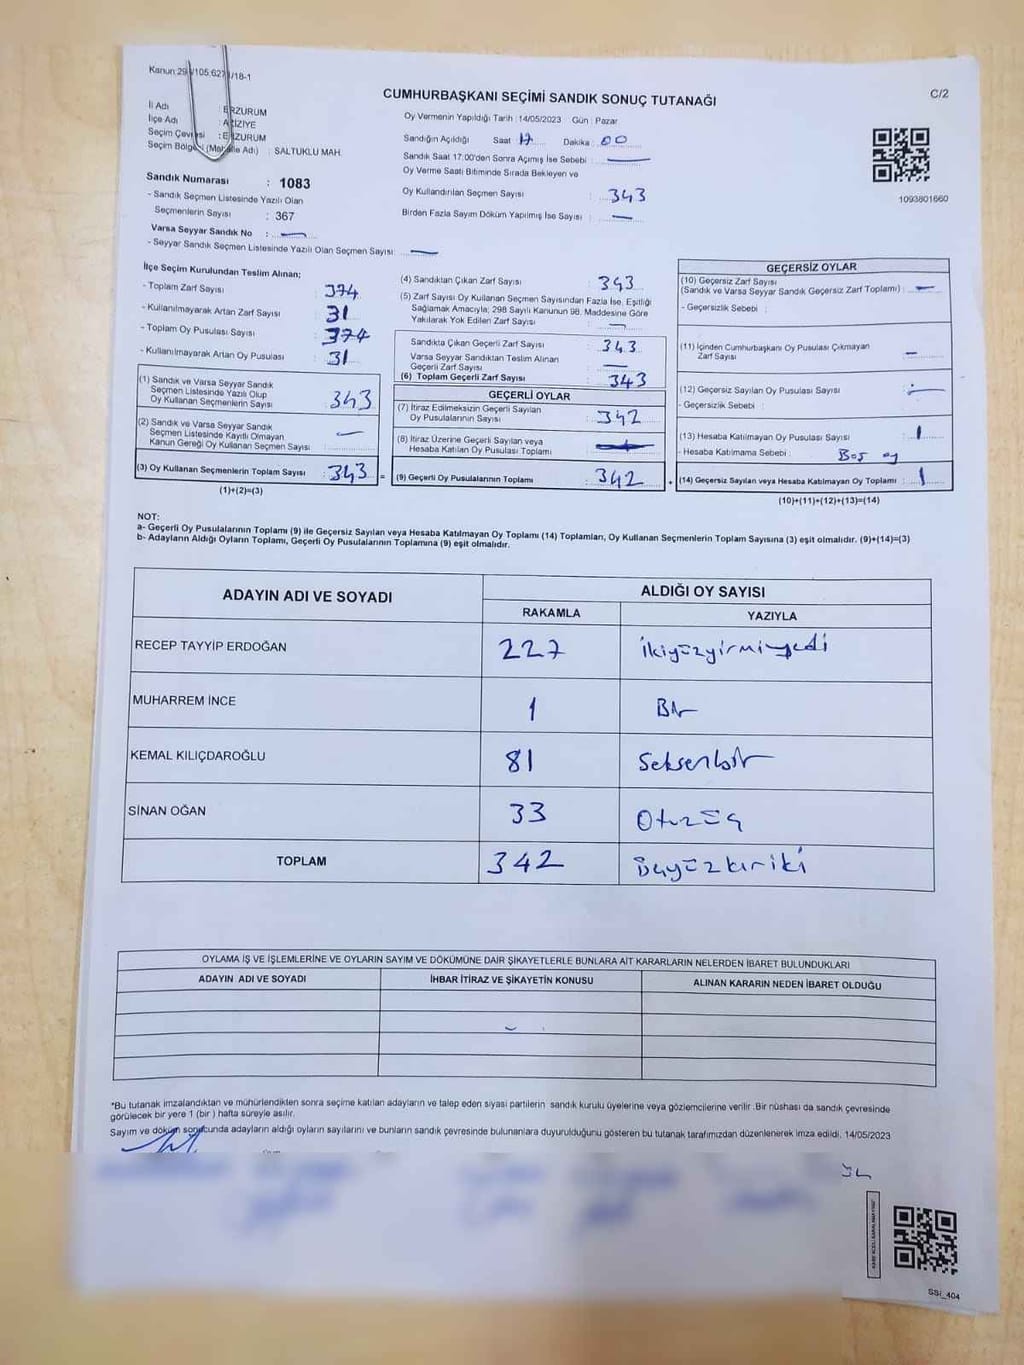 C/2
CUMHURBAŞKANI SEÇİMİ SANDIK SONUÇ TUTANAĞI
İl Adı : ERZURUM
İlçe Adı : AZİZİYE
Seçim Çevresi : ERZURUM
Seçim Bölgesi (Mahalle Adı) : SALTUKLU MAH.
Sandık Numarası : 1083
- Sandık Seçmen Listesinde Yazılı Olan
Seçmenlerin Sayısı : 367
Varsa Seyyar Sandık No : —
- Seyyar Sandık Seçmen Listesinde Yazılı Olan Seçmen Sayısı: —
Oy Vermenin Yapıldığı Tarih : 14/05/2023 Gün : Pazar
Sandığın Açıldığı Saat 17 Dakika : 00
Sandık Saat 17:00'den Sonra Açımış İse Sebebi : —
Oy Verme Saati Bitiminde Sırada Bekleyen ve
Oy Kullandırılan Seçmen Sayısı : 343
Birden Fazla Sayım Döküm Yapılmış İse Sayısı : —
1093801660
İlçe Seçim Kurulundan Teslim Alınan;
- Toplam Zarf Sayısı : 374
- Kullanılmayarak Artan Zarf Sayısı : 31
- Toplam Oy Pusulası Sayısı : 374
- Kullanılmayarak Artan Oy Pusulası : 31
(1) Sandık ve Varsa Seyyar Sandık
Seçmen Listesinde Yazılı Olup
Oy Kullanan Seçmenlerin Sayısı : 343
(2) Sandık ve Varsa Seyyar Sandık
Seçmen Listesinde Kayıtlı Olmayan
Kanun Gereği Oy Kullanan Seçmen Sayısı : —
(3) Oy Kullanan Seçmenlerin Toplam Sayısı : 343
(1)+(2)=(3)
(4) Sandıktan Çıkan Zarf Sayısı : 343
(5) Zarf Sayısı Oy Kullanan Seçmen Sayısından Fazla İse, Eşitliği
Sağlamak Amacıyla; 298 Sayılı Kanunun 98. Maddesine Göre
Yakılarak Yok Edilen Zarf Sayısı : —
Sandıkta Çıkan Geçerli Zarf Sayısı : 343
Varsa Seyyar Sandıktan Teslim Alınan
Geçerli Zarf Sayısı : —
(6) Toplam Geçerli Zarf Sayısı : 343
GEÇERLİ OYLAR
(7) İtiraz Edilmeksizin Geçerli Sayılan
Oy Pusulalarının Sayısı : 342
(8) İtiraz Üzerine Geçerli Sayılan veya
Hesaba Katılan Oy Pusulası Toplamı :
(9) Geçerli Oy Pusulalarının Toplamı : 342
GEÇERSİZ OYLAR
(10) Geçersiz Zarf Sayısı
(Sandık ve Varsa Seyyar Sandık Geçersiz Zarf Toplamı) : —
- Geçersizlik Sebebi :
(11) İçinden Cumhurbaşkanı Oy Pusulası Çıkmayan
Zarf Sayısı : —
(12) Geçersiz Sayılan Oy Pusulası Sayısı : —
- Geçersizlik Sebebi :
(13) Hesaba Katılmayan Oy Pusulası Sayısı : 1
- Hesaba Katılmama Sebebi : Boş oy
(14) Geçersiz Sayılan veya Hesaba Katılmayan Oy Toplamı : 1
(10)+(11)+(12)+(13)=(14)
NOT:
a- Geçerli Oy Pusulalarının Toplamı (9) ile Geçersiz Sayılan veya Hesaba Katılmayan Oy Toplamı (14) Toplamları, Oy Kullanan Seçmenlerin Toplam Sayısına (3) eşit olmalıdır. (9)+(14)=(3)
b- Adayların Aldığı Oyların Toplamı, Geçerli Oy Pusulalarının Toplamına (9) eşit olmalıdır.
ADAYIN ADI VE SOYADI ALDIĞI OY SAYISI
RAKAMLA YAZIYLA
RECEP TAYYİP ERDOĞAN 227 ikiyüzyirmiyedi
MUHARREM İNCE 1 Bir
KEMAL KILIÇDAROĞLU 81 Seksenbir
SİNAN OĞAN 33 Otuzüç
TOPLAM 342 üçyüzkırkiki
OYLAMA İŞ VE İŞLEMLERİNE VE OYLARIN SAYIM VE DÖKÜMÜNE DAİR ŞİKAYETLERLE BUNLARA AİT KARARLARIN NELERDEN İBARET BULUNDUKLARI
ADAYIN ADI VE SOYADI İHBAR İTİRAZ VE ŞİKAYETİN KONUSU ALINAN KARARIN NEDEN İBARET OLDUĞU
*Bu tutanak imzalandıktan ve mühürlendikten sonra seçime katılan adayların ve talep eden siyasi partilerin sandık kurulu üyelerine veya gözlemcilerine verilir.Bir nüshası da sandık çevresinde
görülecek bir yere 1 (bir ) hafta süreyle asılır.
Sayım ve döküm sonucunda adayların aldığı oyların sayılarını ve bunların sandık çevresinde bulunanlara duyurulduğunu gösteren bu tutanak tarafımızdan düzenlenerek imza edildi. 14/05/2023
SSİ_404